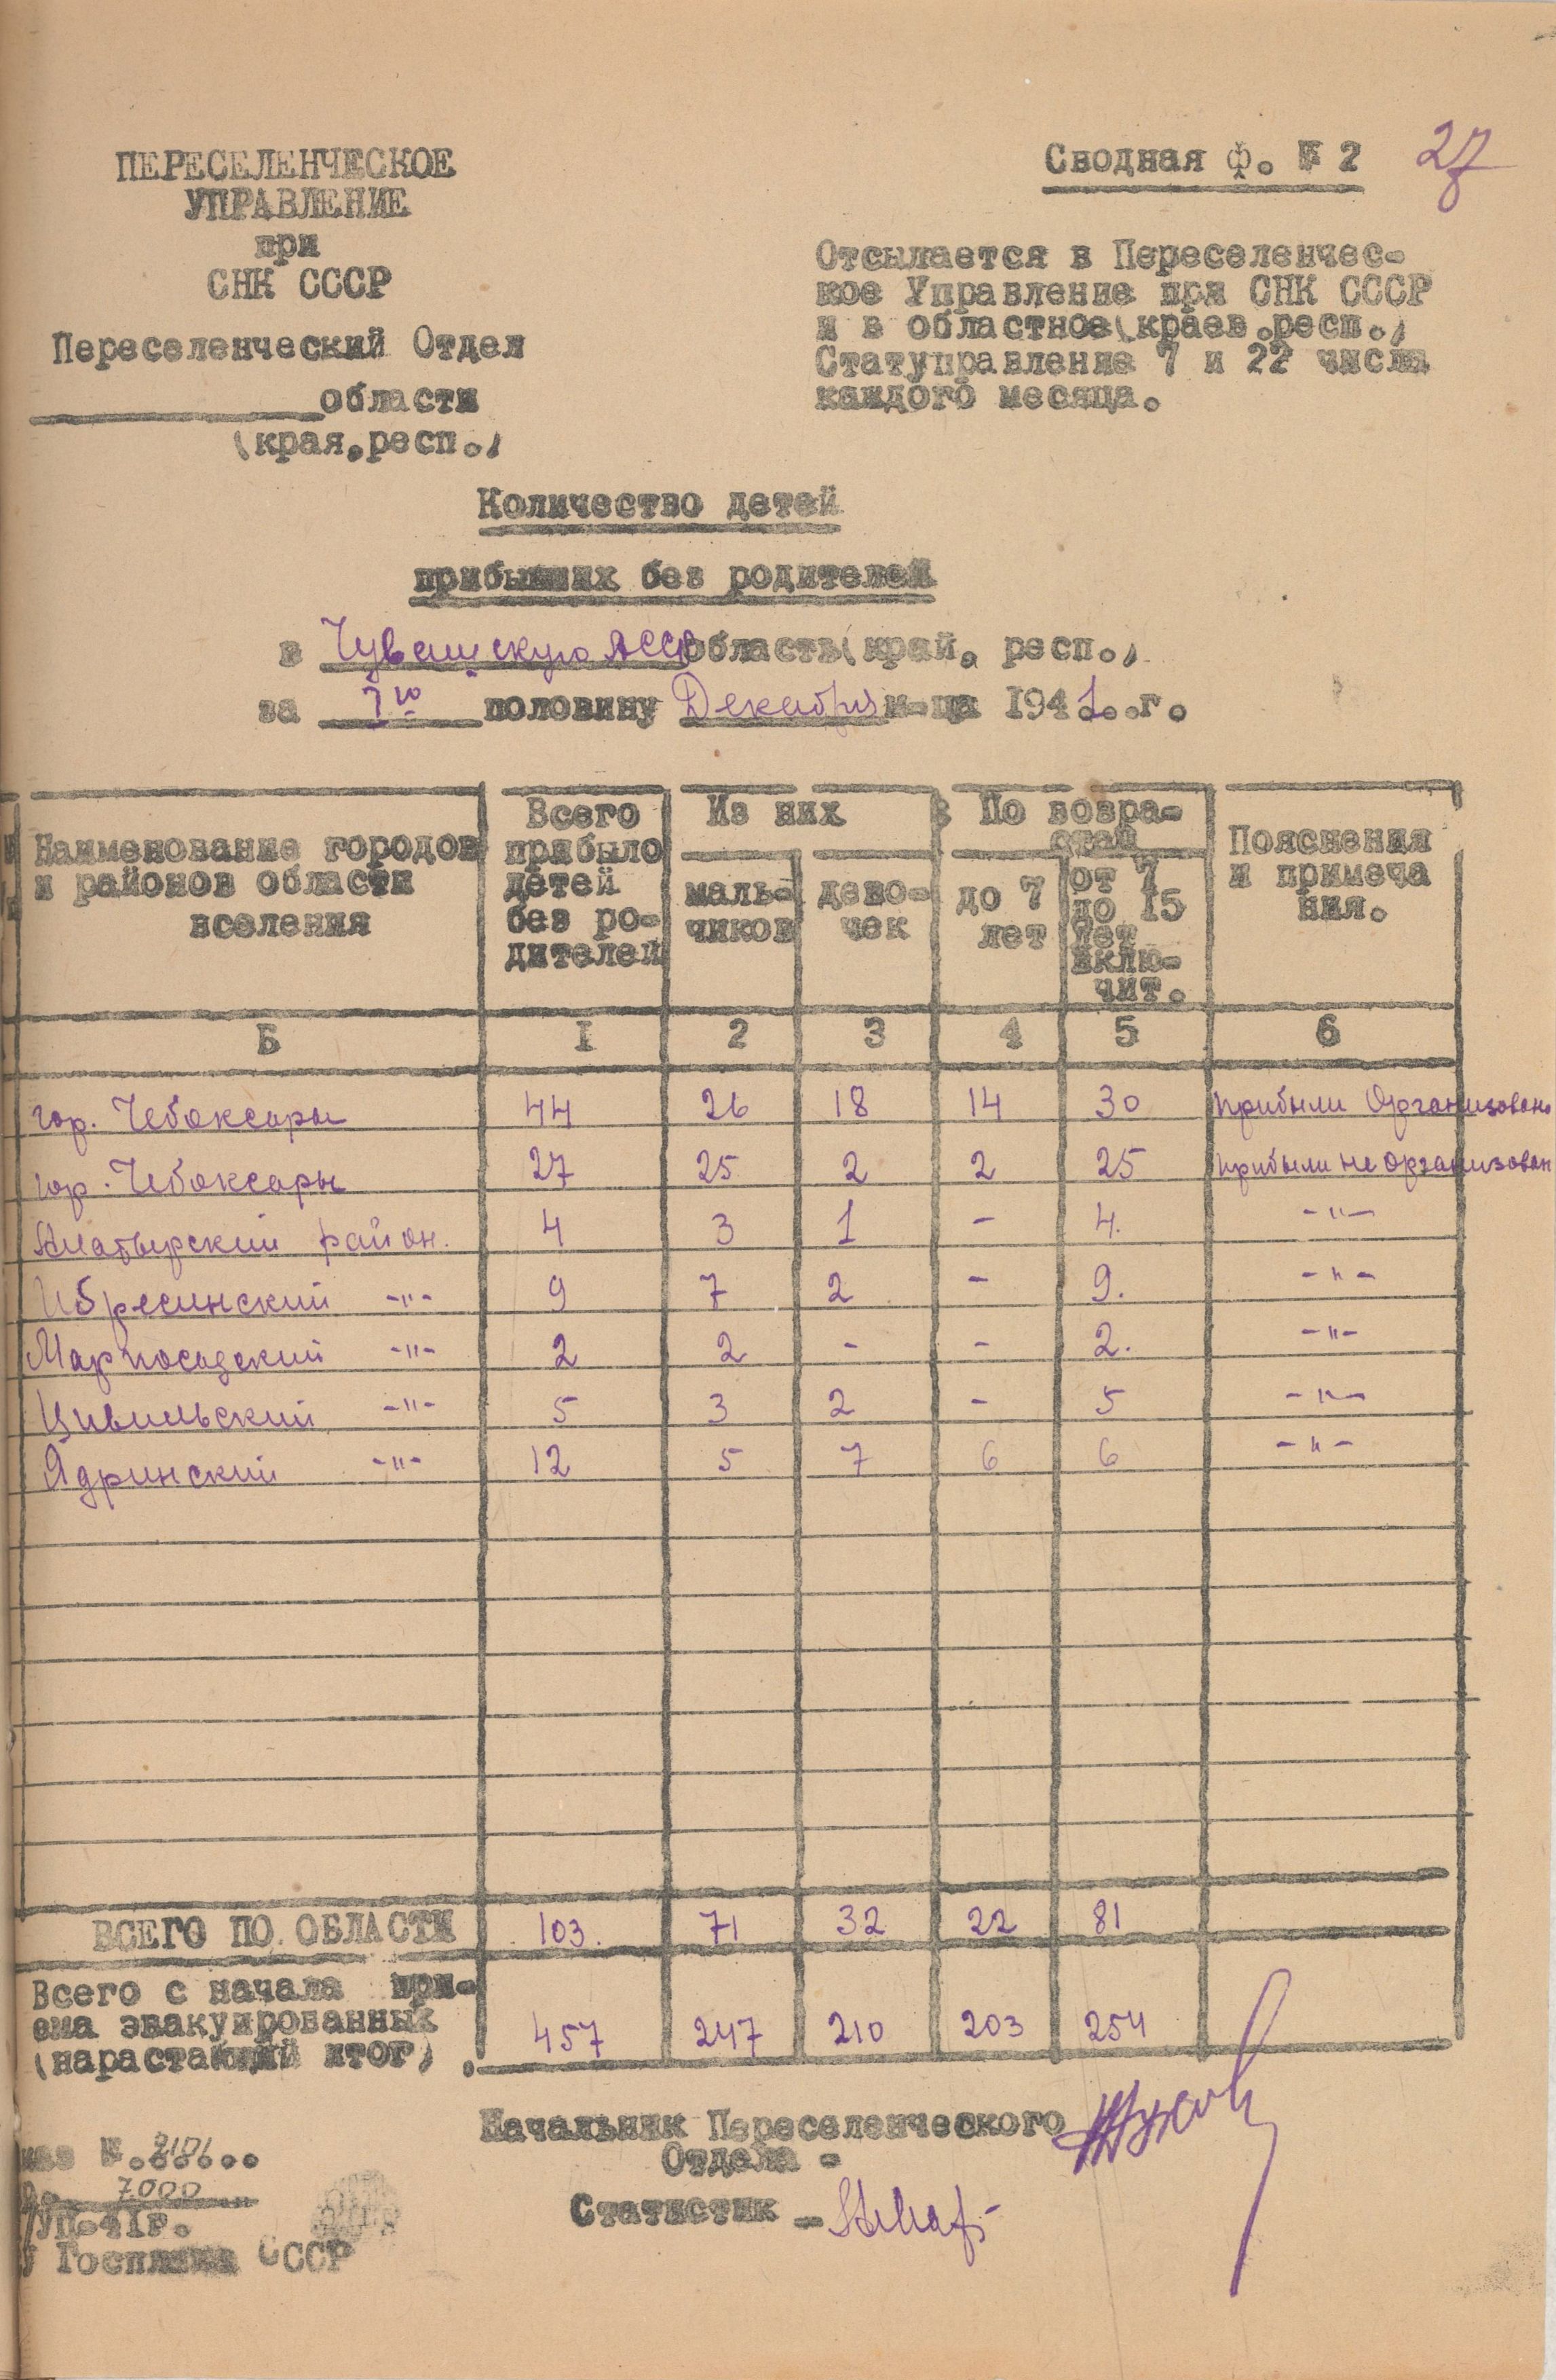 ПЕРЕСЕЛЕНЧЕСКОЕ
УПРАВЛЕНИЕ
при
СНК СССР
Переселенческий Отдел
области
(края, респ.)
Сводная ф. № 2
27
Отсылается в Переселенчес-
кое Управление при СНК СССР
и в областное (краев. респ.)
Статуправление 7 и 22 числа
каждого месяца.
Количество детей
прибывших без родителей
в Чувашскую АССР область (край, респ.)
за 1ую половину Декабря м-ца 1941..г.
Наименование городов
и районов области
вселения
Всего
прибыло
детей
без ро-
дителей
Из них
маль-
чиков
дево-
чек
По возра-
стам
до 7
лет
от 7
до 15
лет
вклю-
чит.
Пояснения
и примеча
ния.
Б I 2 3 4 5 6
гор. Чебоксары 44 26 18 14 30 прибыли Организовано
гор. Чебоксары 27 25 2 2 25 прибыли не организован
Алатырский район. 4 3 1 - 4. -"-
Ибресинский -"- 9 7 2 - 9. -"-
Марпосадский -"- 2 2 - - 2. -"-
Цивильский -"- 5 3 2 - 5 -"-
Ядринский -"- 12 5 7 6 6 -"-
ВСЕГО ПО ОБЛАСТИ 103. 71 32 22 81
Всего с начала при-
ема эвакуированных
(нарастающий итог) 457 247 210 203 254
Начальник Переселенческого
Отдела -
Статистик -
7000
Госплана СССР